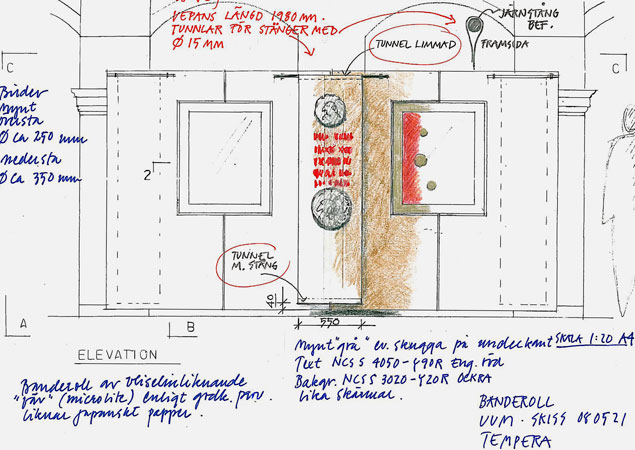 VEPANS LÄNGD 1980 MM.
TUNNLAR FÖR STÄNGER MED
Ø 15 MM
TUNNEL LIMMAD
JÄRNSTÅNG
BEF.
FRAMSIDA
C
C
Bilder
Mynt
översta
Ø ca 250 mm
nedersta
Ø ca 350 mm
2
TUNNEL
M. STÅNG
40
550
A
B
A
ELEVATION
Mynt "grå" ev. skugga på underkant
SKALA 1:20 A4
Text NCS S 4050-Y90R Eng. röd
Bakgr. NCS S 3020-Y20R OCKRA
lika skärmar.
Banderoll av vliselinliknande
"väv" (microlite) enligt godk. prov.
liknar japanskt papper.
BANDEROLL
UUM. SKISS 080521
TEMPERA